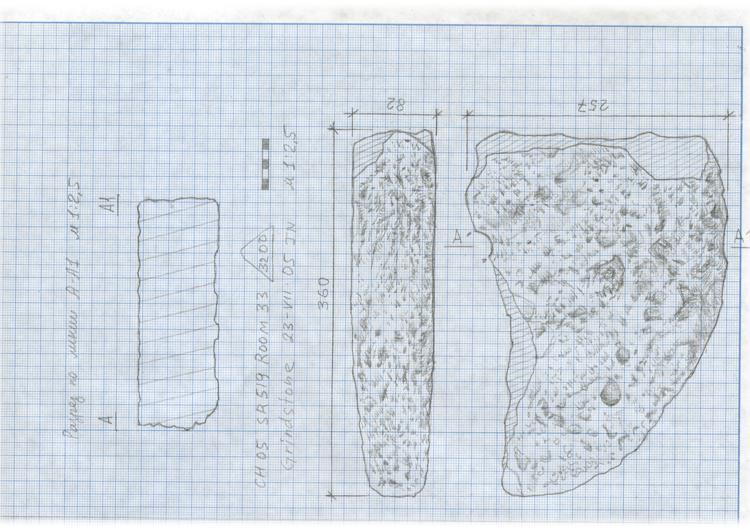 Разрез по линии А-А1 м 1:2,5
А
А1
CH 05 SR519 ROOM 33 3200
Grindstone 23·VII 05 JN м 1:2,5
360
82
257
А
А1